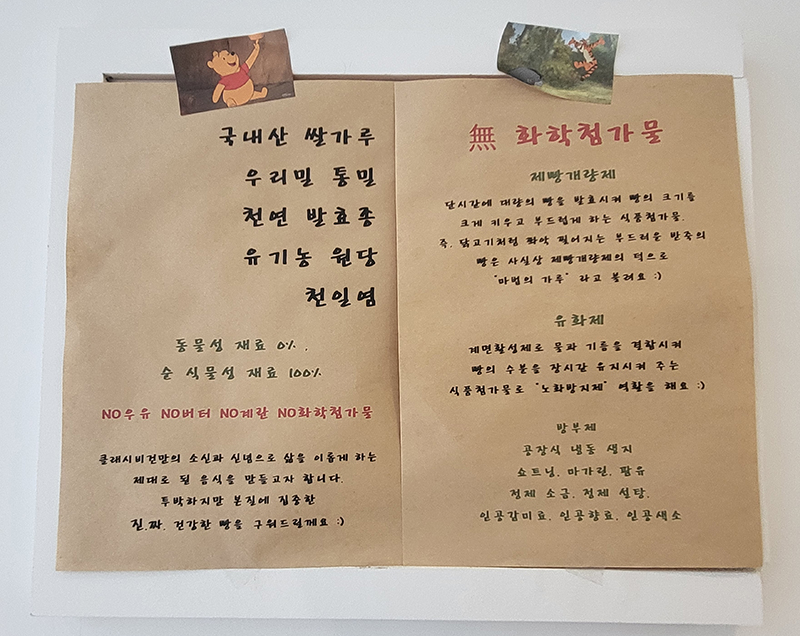 국내산 쌀가루
우리밀 통밀
천연 발효종
유기농 원당
천일염
동물성 재료 0%.
순 식물성 재료 100%
NO우유 NO버터 NO계란 NO화학첨가물
클래시비건만의 소신과 신념으로 삶을 이롭게 하는
제대로 된 음식을 만들고자 합니다.
투박하지만 본질에 집중한
진.짜. 건강한 빵을 구워드릴게요 :)
無 화학첨가물
제빵개량제
단시간에 대량의 빵을 발효시켜 빵의 크기를
크게 키우고 부드럽게 하는 식품첨가물.
즉, 닭고기처럼 쫘악 찢어지는 부드러운 반죽의
빵은 사실상 제빵개량제의 덕으로
"마법의 가루" 라고 불려요 :)
유화제
계면활성제로 물과 기름을 결합시켜
빵의 수분을 장시간 유지시켜 주는
식품첨가물로 "노화방지제" 역할을 해요 :)
방부제
공장식 냉동 생지
쇼트닝, 마가린, 팜유
정제 소금, 정제 설탕,
인공감미료, 인공향료, 인공색소